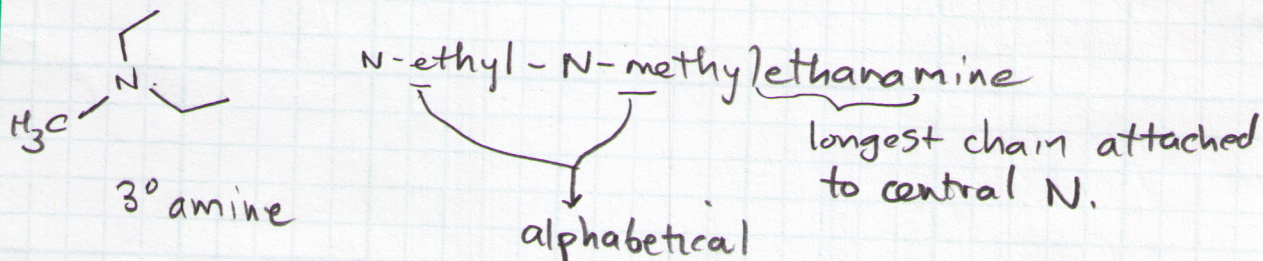 N
H₃C
3° amine
N-ethyl-N-methylethanamine
longest chain attached
to central N.
alphabetical